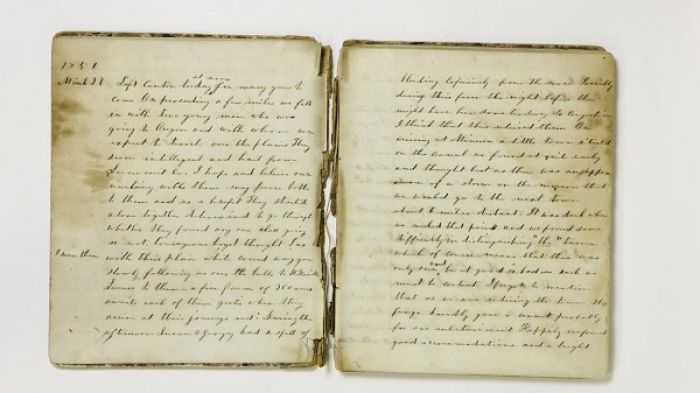 1851
March 28 Left Canton today at noon for many years to
come On proceeding a few miles we fell
in with two young men who was
going to Oregon and with whom we
expect to travel over the plains They
seem intelligent and hail from
Co. I hope and believe our
with them may prove both
to them and us a benefit They started
alone together determined to go through
whether they found any one else going
or not, courageous boys! thought I as
with their plain white covered waggon
slowly following us over the hills to
to them a free farm of 320 acres
awaits each of these gents when they
arrive at their journeys end. During the
afternoon and had a spell of
I seen them
bleeding copiously from the nose Possibly
during this from the night before they
might have have some tendency to
I think that this relieved them On
arriving at Minerva a little town situated
on the canal we found it quite early
and thought but as there was an appear
ance of a storm on the morrow that
we would go to the next town
about 6 miles distant. It was dark when
we reached that point and we found some
difficulty in distinguishing "the" tavern
which of course means that there was
only one and be it good or bad as such we
must be content I forgot to mention
that as we were entering the town the
frogs kindly gave a concert probably
for our entertainment Happily we found
good accommodations and a bright